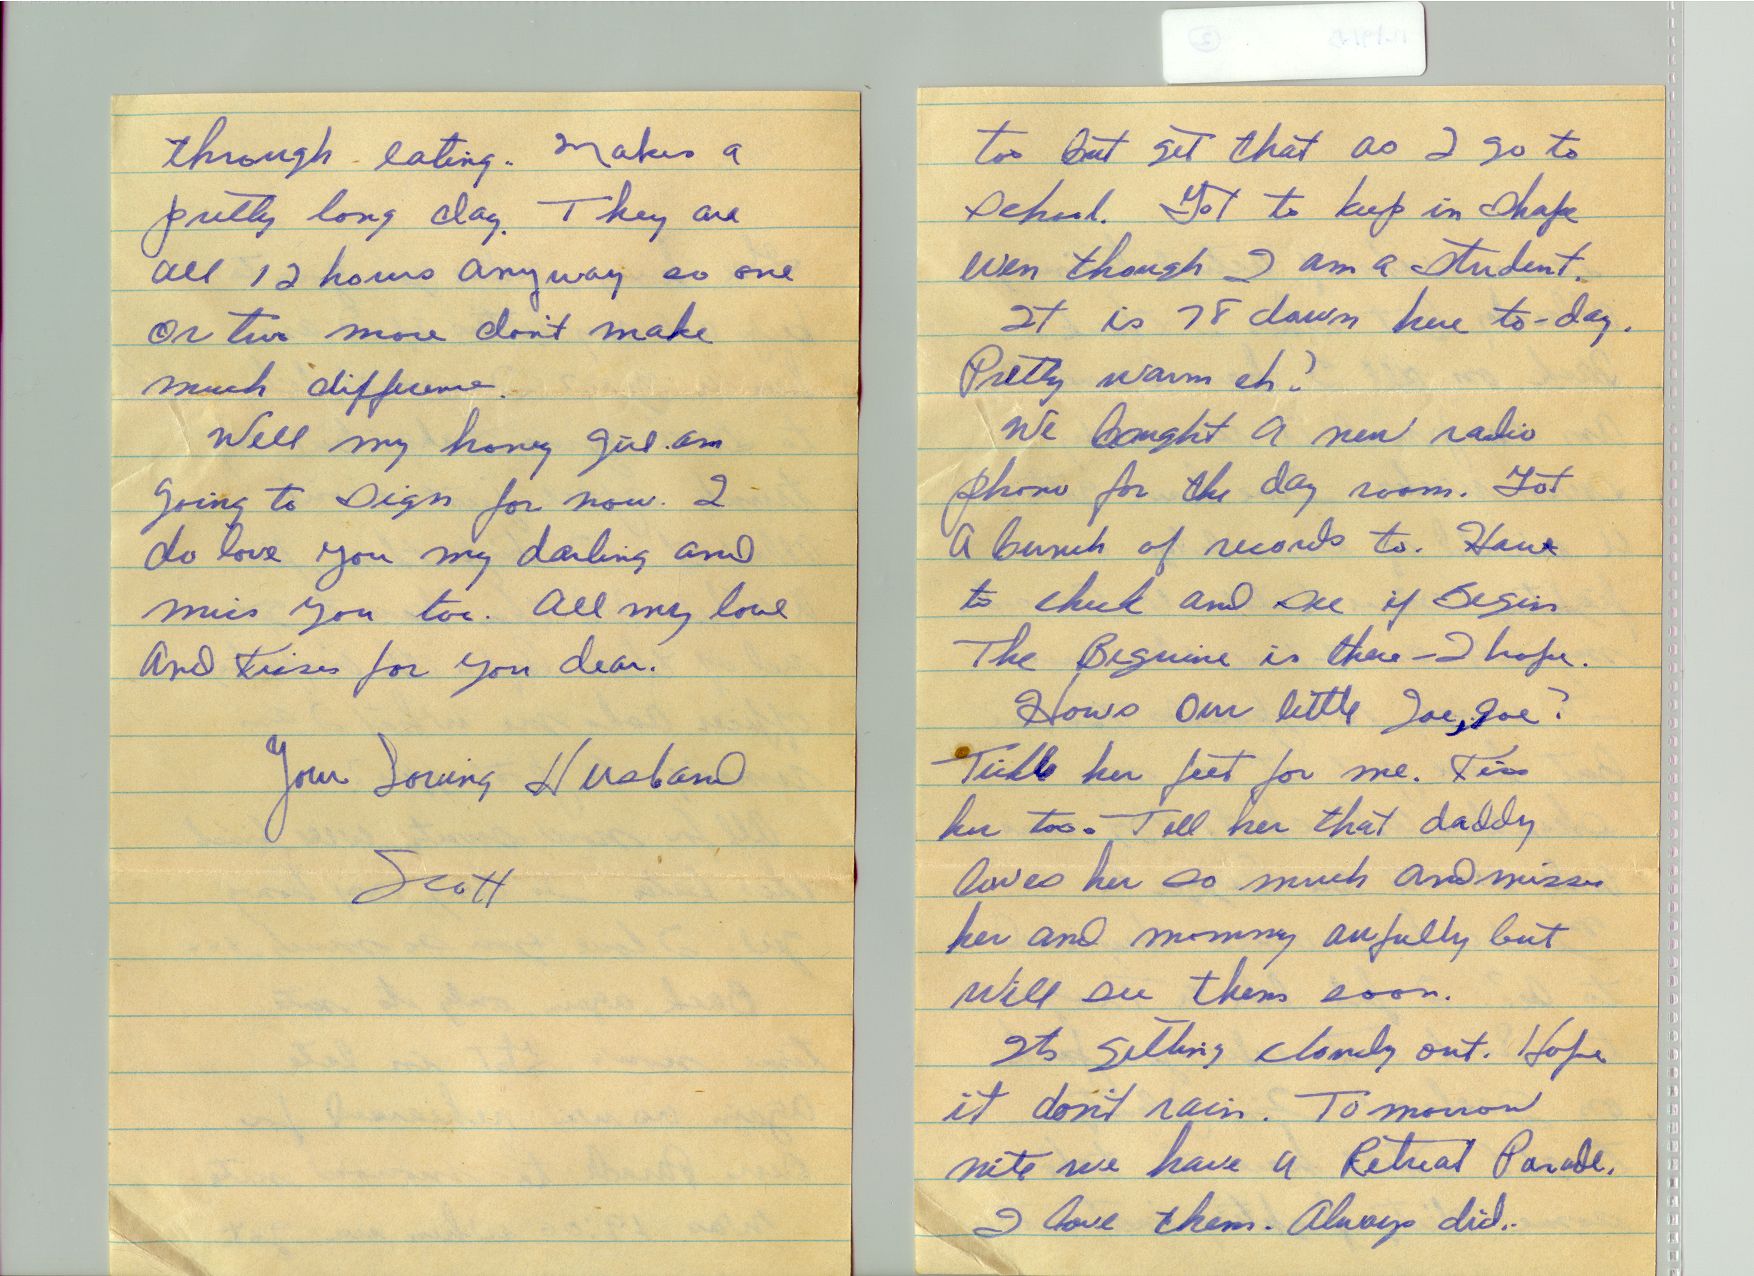 through eating. Makes a
pretty long day. They are
all 12 hours anyway so one
or two more don't make
much difference.
Well my honey girl am
going to sign for now. I
do love you my darling and
miss you too. All my love
and kisses for you dear.
Your Loving Husband
Scott
too but get that as I go to
school. Got to keep in shape
even though I am a student.
It is 78 down here to-day.
Pretty warm eh?
We bought a new radio
phono for the day room. Got
a bunch of records to. Have
to check and see if Begin
The Beguine is there - I hope.
Hows our little Joe, Joe?
Tickle her feet for me. Kiss
her too. Tell her that daddy
loves her so much and misses
her and mommy awfully but
will see them soon.
Its getting cloudy out. Hope
it don't rain. Tomorrow
nite we have a Retreat Parade.
I love them. Always did.